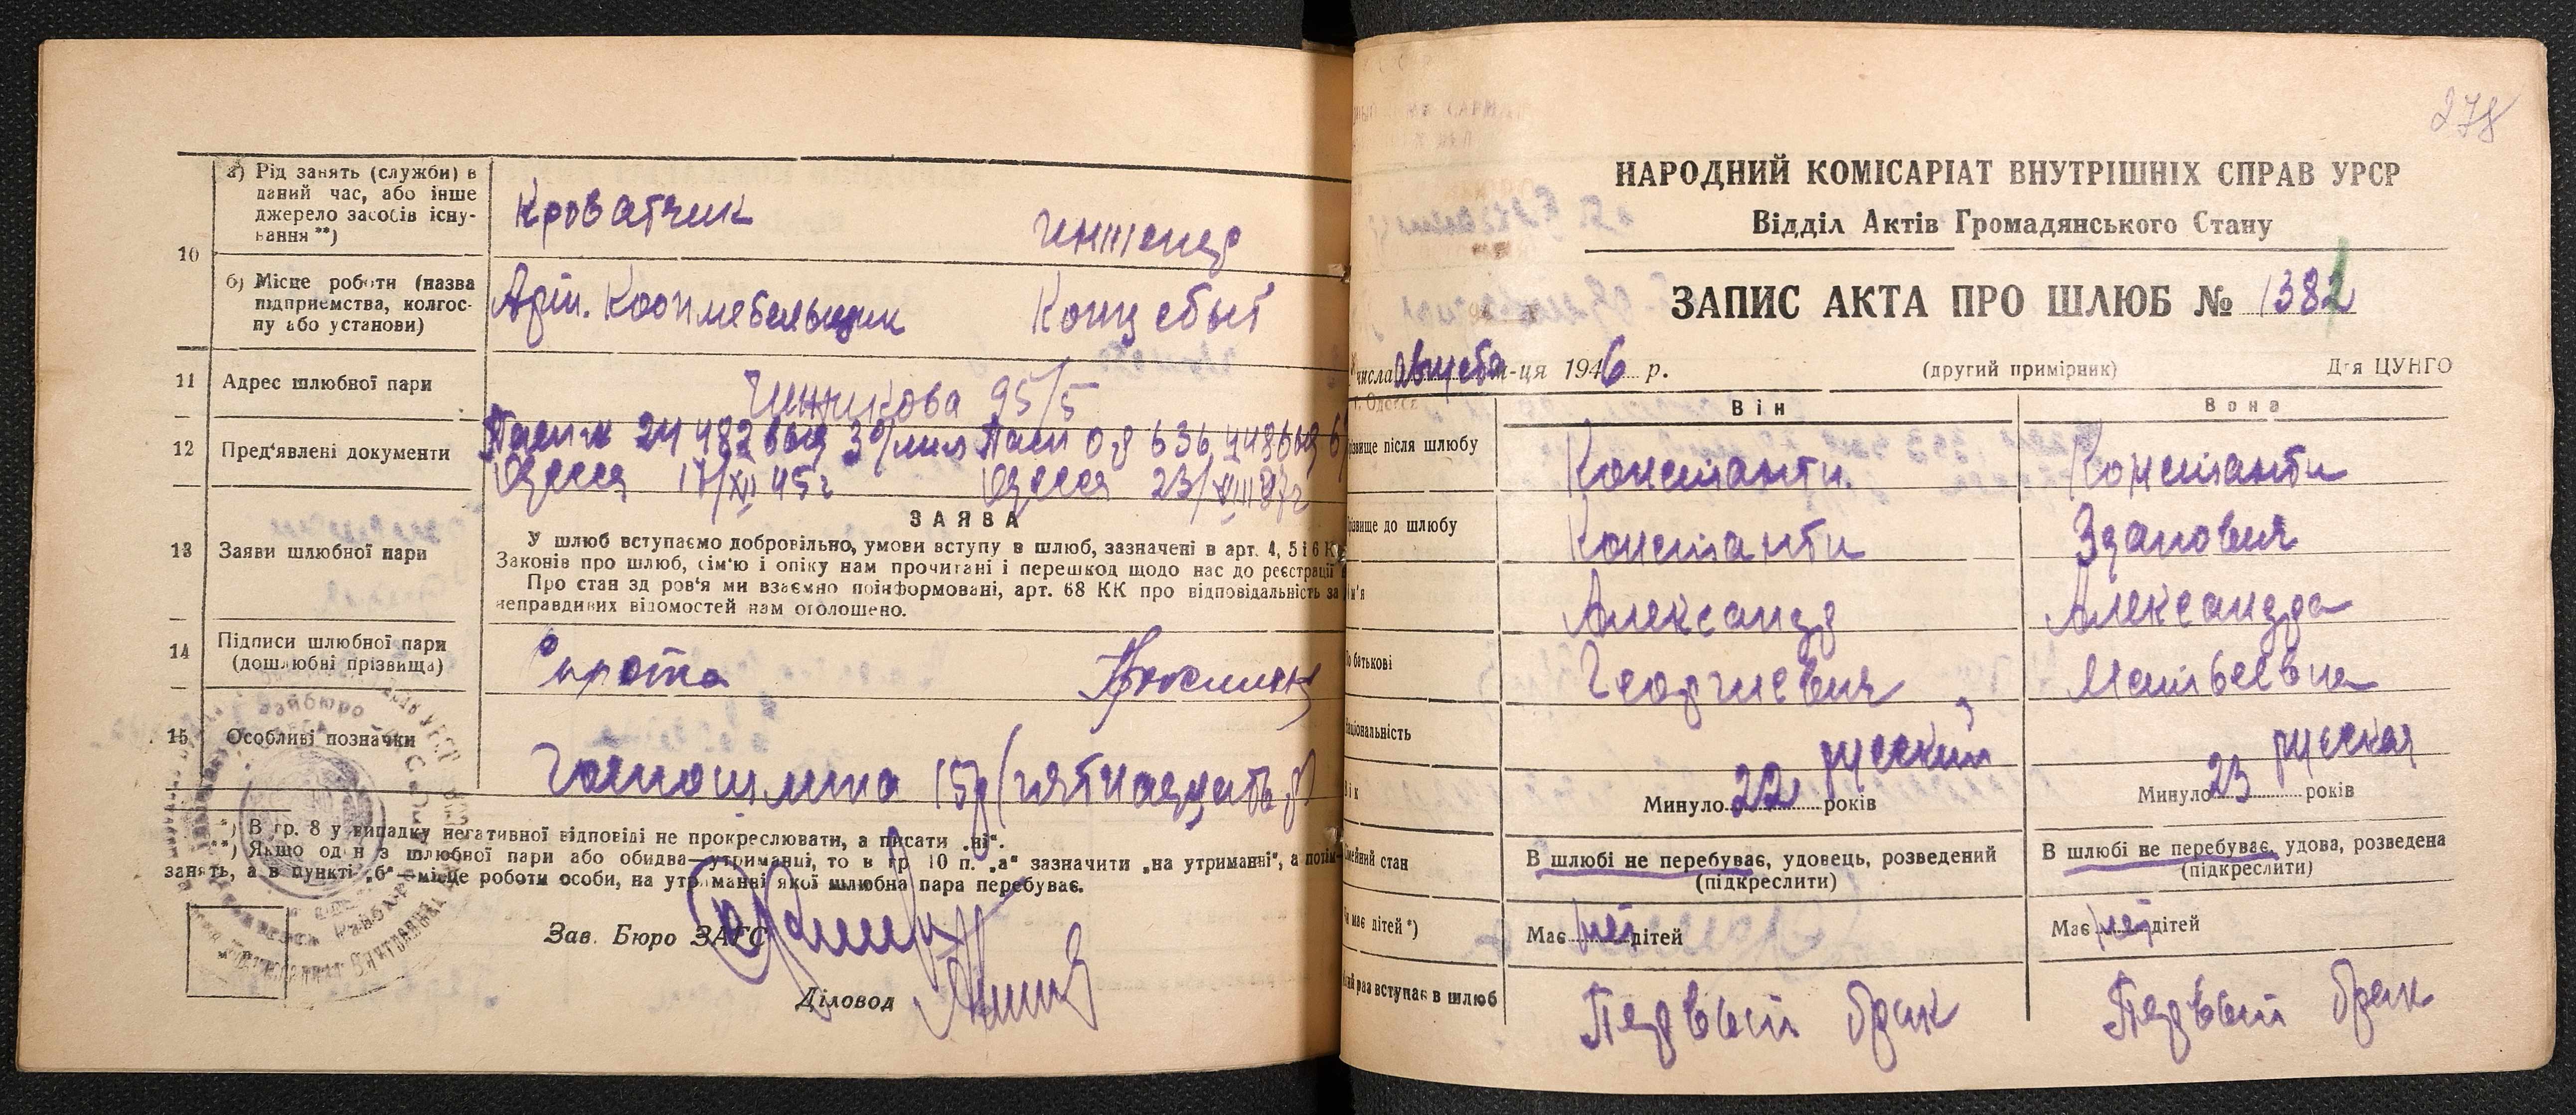 10
а) Рід занять (служби) в
даний час, або інше
джерело засобів існу-
вання **)
Кроватчик
инженер
б) Місце роботи (назва
підприємства, колгос-
пу або установи)
Конц сбыт
11 Адрес шлюбної пари
95/5
12 Пред'явлені документи
Одесса 17/XII 45 г
Одесса 23/
13 Заяви шлюбної пари
ЗАЯВА
У шлюб вступаємо добровільно, умови вступу в шлюб, зазначені в арт. 4, 5 і 6 К
Законів про шлюб, сім'ю і опіку нам прочитані і перешкод щодо нас до реєстрації
Про стан здоров'я ми взаємно поінформовані, арт. 68 КК про відповідальність за
неправдивих відомостей нам оголошено.
14 Підписи шлюбної пари
(дошлюбні прізвища)
Сирота
15 Особливі позначки
Госпошлина 15 р (пятнадцать р)
*) В гр. 8 у випадку негативної відповіді не прокреслювати, а писати „ні“.
**) Якщо один з шлюбної пари або обидва—утриманці, то в гр. 10 п. „а“ зазначити „на утриманні“, а потім—
занять, а в пункті „б“—місце роботи особи, на утриманні якої шлюбна пара перебуває.
Зав. Бюро ЗАГС
Діловод
278
НАРОДНИЙ КОМІСАРІАТ ВНУТРІШНІХ СПРАВ УРСР
Відділ Актів Громадянського Стану
ЗАПИС АКТА ПРО ШЛЮБ № 1382
числа августа м-ця 1946 р. (другий примірник) Для ЦУНГО
г. Одесса
Він Вона
різвище після шлюбу Константи Константи
різвище до шлюбу Константи Зданович
м'я Александр Александра
По батькові Георгиевич Матвеевна
Національність русский русская
Вік Минуло 22 років Минуло 23 років
Сімейний стан
В шлюбі не перебуває, удовець, розведений
(підкреслити)
В шлюбі не перебуває, удова, розведена
(підкреслити)
Чи має дітей *) Має нет дітей Має нет дітей
який раз вступає в шлюб Первый брак Первый брак